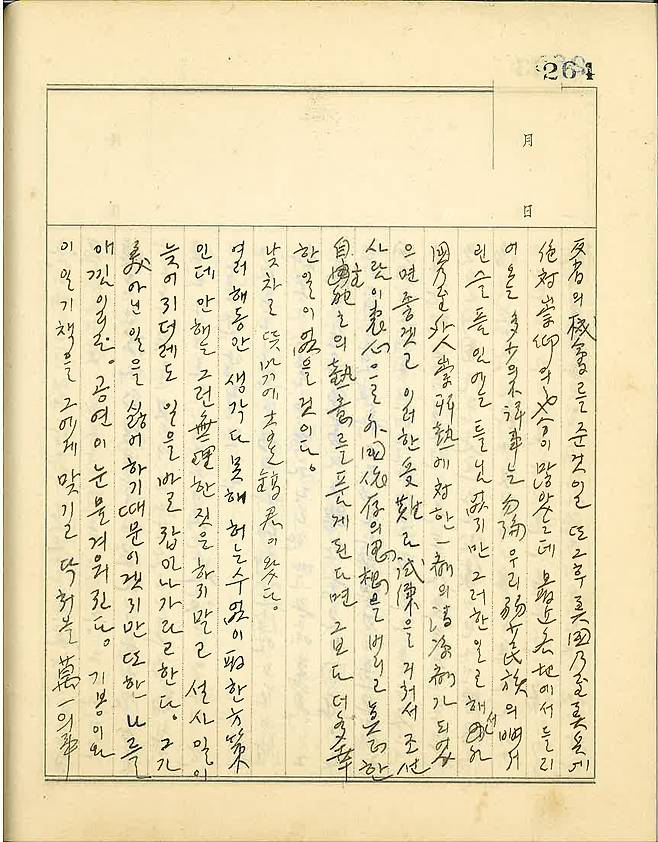 264
月
日
反省의 機會를 준것이오 또 그후 美國乃至 美兵에
絶対崇仰의 많았는데 最近 各地에서 들리
어오는 多少의 不祥事는 勿論 우리 弱少民族의 뼈저
린 슬픔 일에는 틀님없지만 그러한 일로 해서
國乃至 外人崇拜熱에 対한 一部의 淸涼劑가 되였
으면 좋겠고 이러한 受難과 試煉을 거처서 조선
사람이 衷心으로 外國依存의 思想을 버리고 眞正한
自主 의 熱意를 품게 된다면 그보다 더 多幸
한 일이 없을 것이다.
낮차로 뜻밖에 君이 왔다.
여러해동안 생각다못해 허는수없이 取한 方策
인데 안해는 그런 無理한 짓을 하지말고 설사 일이
늦어지더레도 일을 바로 잡어나가라고 한다. 그가
美 아닌 일을 싫어하기 때문이겠지만 또한 나를
애낌일로다. 공연이 눈물겨워진다. 기봉이와
이 일기책을 그에게 맞기고 닥처올 萬一의 事